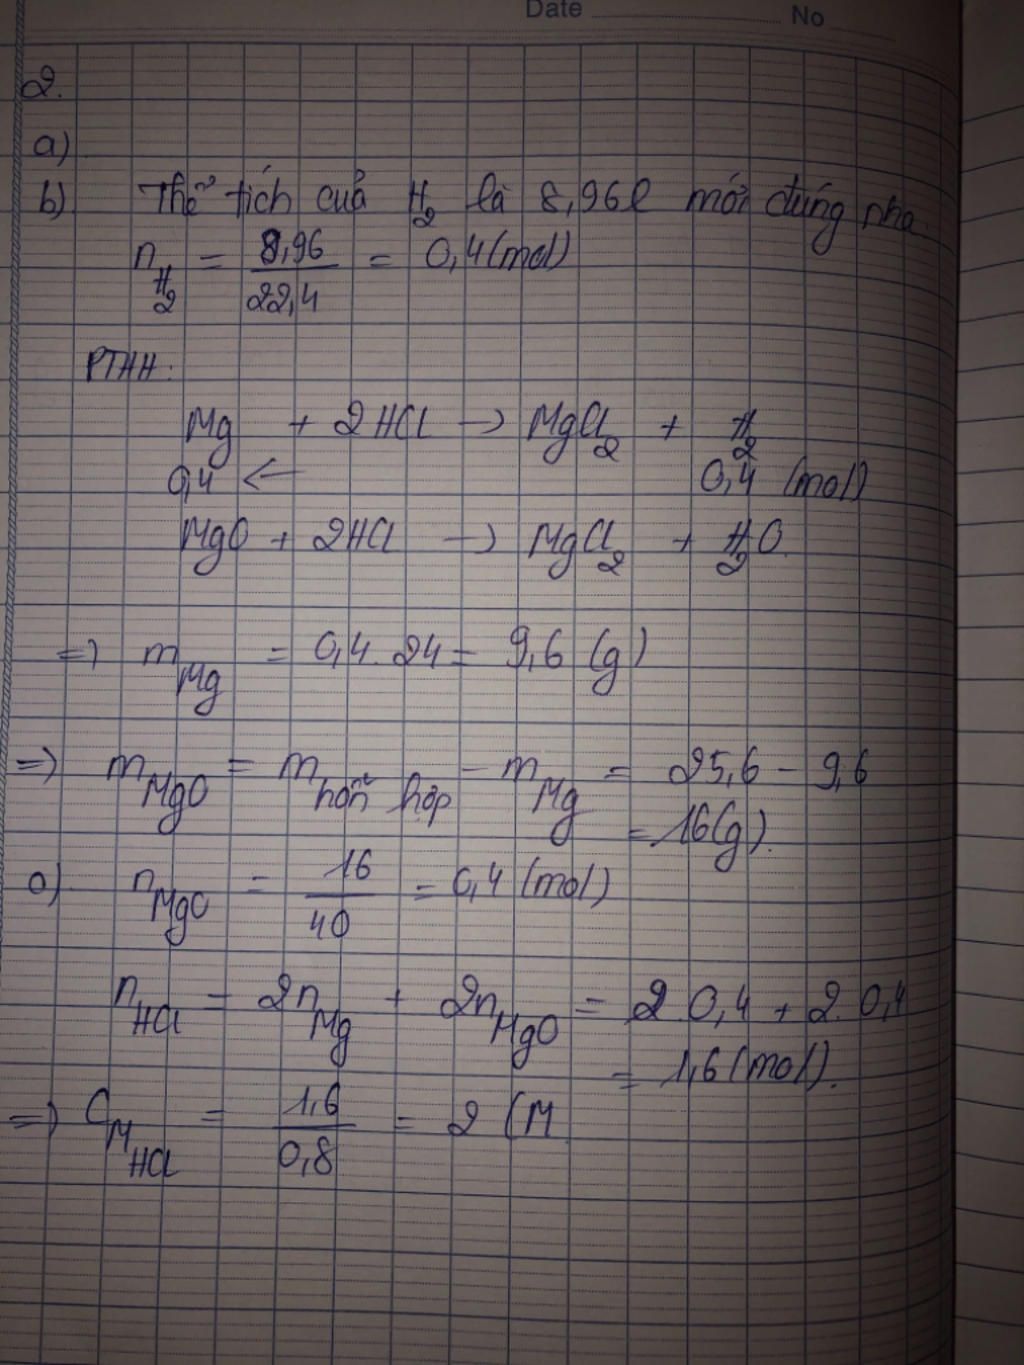 Date No
2.
a)
b) Thể tích của H₂ là 8,96l mới đúng nha.
n_H₂ = 8,96/22,4 = 0,4 (mol)
PTHH:
Mg + 2HCl → MgCl₂ + H₂
0,4 ← 0,4 (mol)
MgO + 2HCl → MgCl₂ + H₂O
=> m_Mg = 0,4.24 = 9,6 (g)
=> m_MgO = m_hỗn hợp - m_Mg = 25,6 - 9,6
= 16 (g).
c) n_MgO = 16/40 = 0,4 (mol)
n_HCl = 2n_Mg + 2n_MgO = 2.0,4 + 2.0,4
= 1,6 (mol).
=> C_M_HCl = 1,6/0,8 = 2 (M